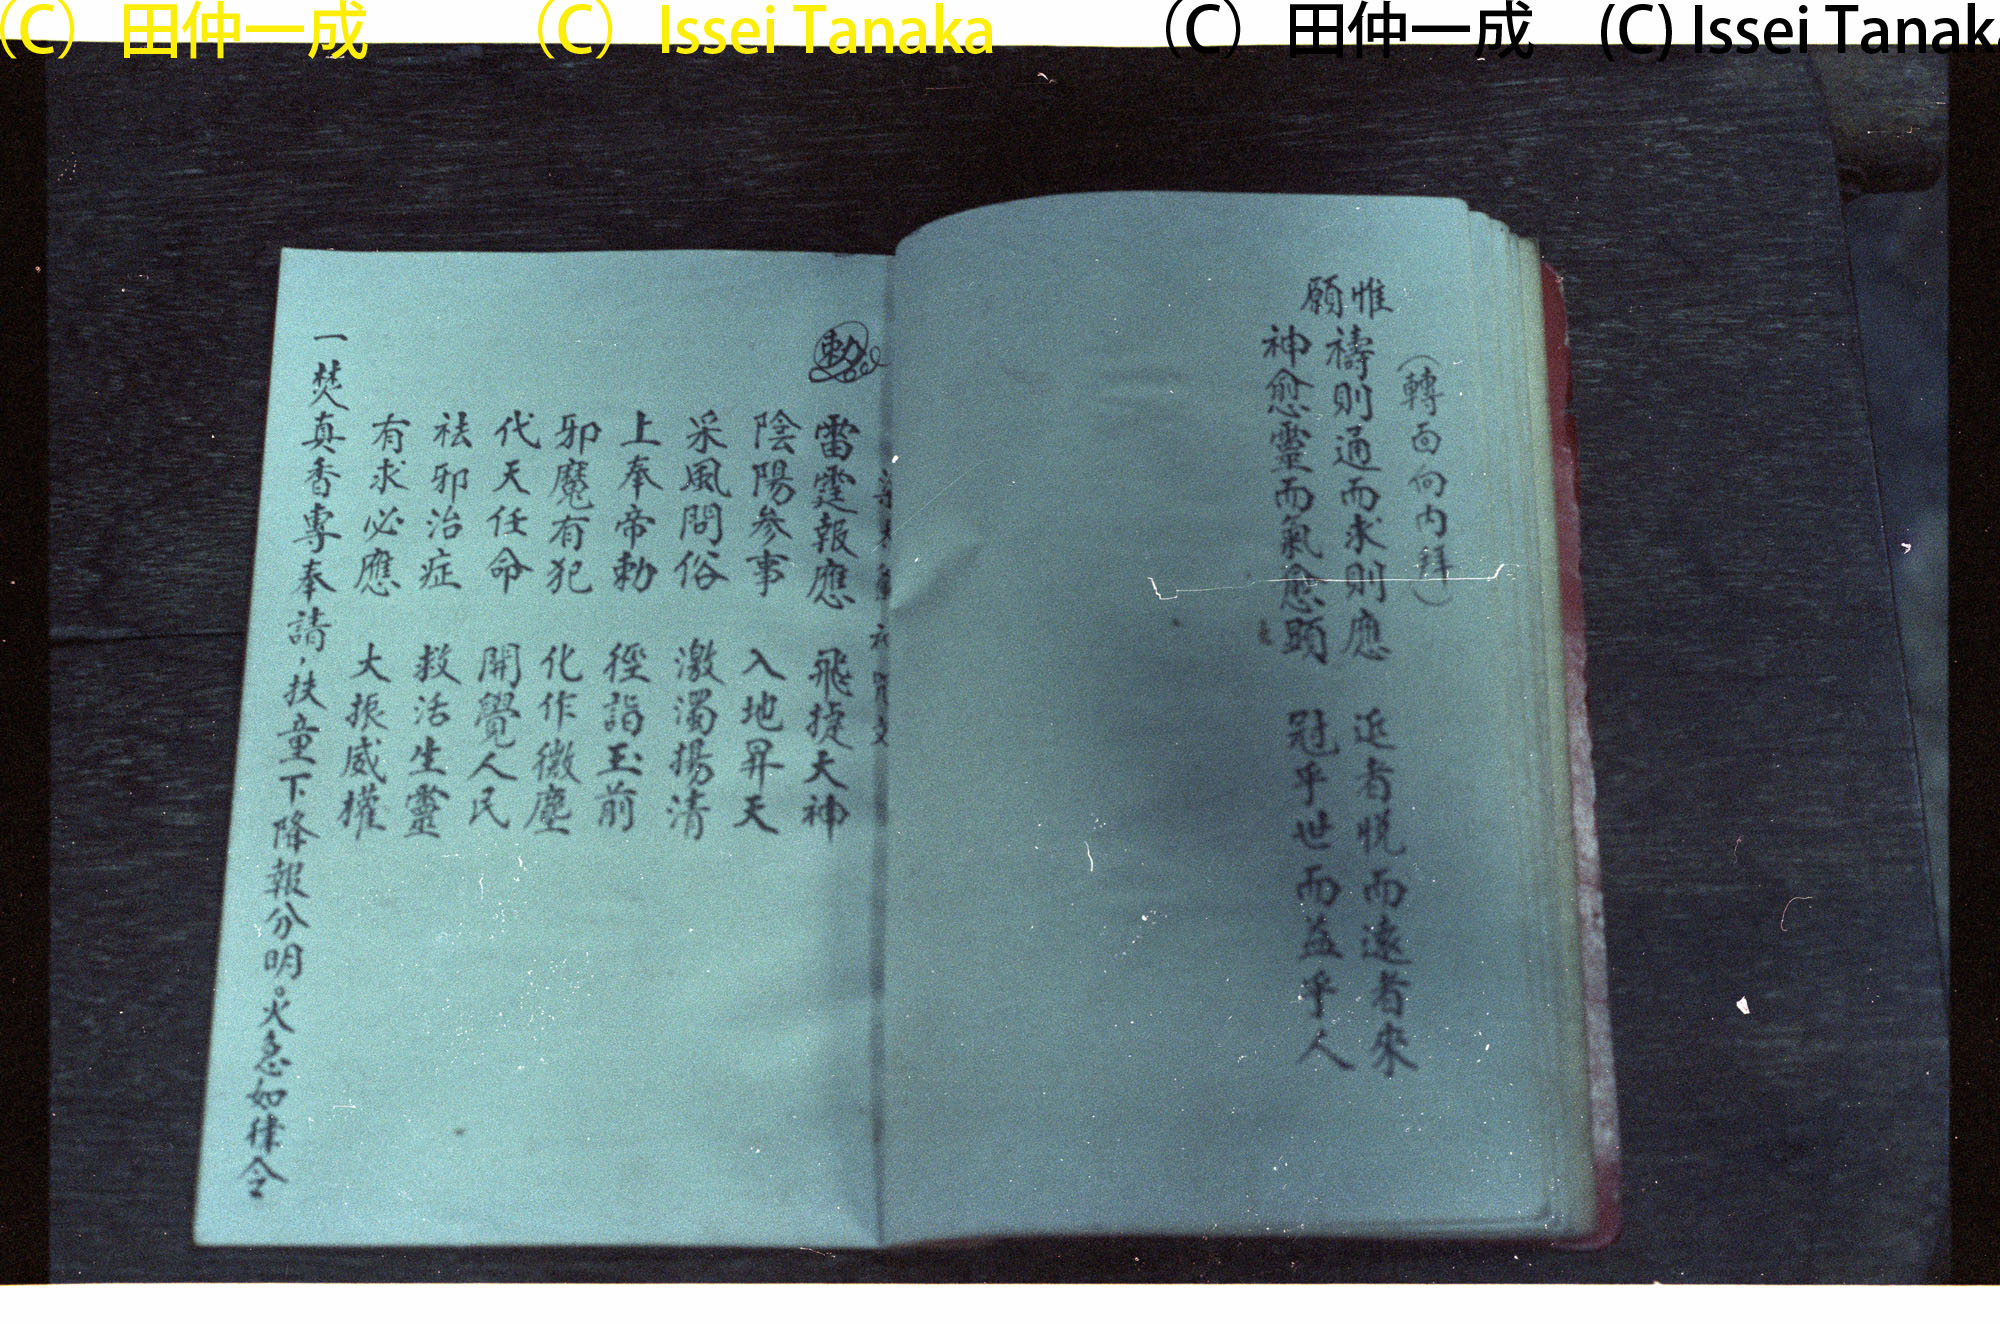 (C) 田仲一成 (C) Issei Tanaka (C) 田仲一成 (C) Issei Tanaka
（轉面向内拜）
惟願
禱則通而求則應 近者悅而遠者來
神愈靈而氣愈顕 冠乎世而益乎人
勅
雷霆報應 飛捷大神
陰陽參事 入地昇天
采風問俗 激濁揚清
上奉帝勅 徑詣玉前
邪魔有犯 化作微塵
代天任命 開覺人民
祛邪治症 救活生靈
有求必應 大振威權
一焚真香專奉請，扶童下降報分明。火急如律令